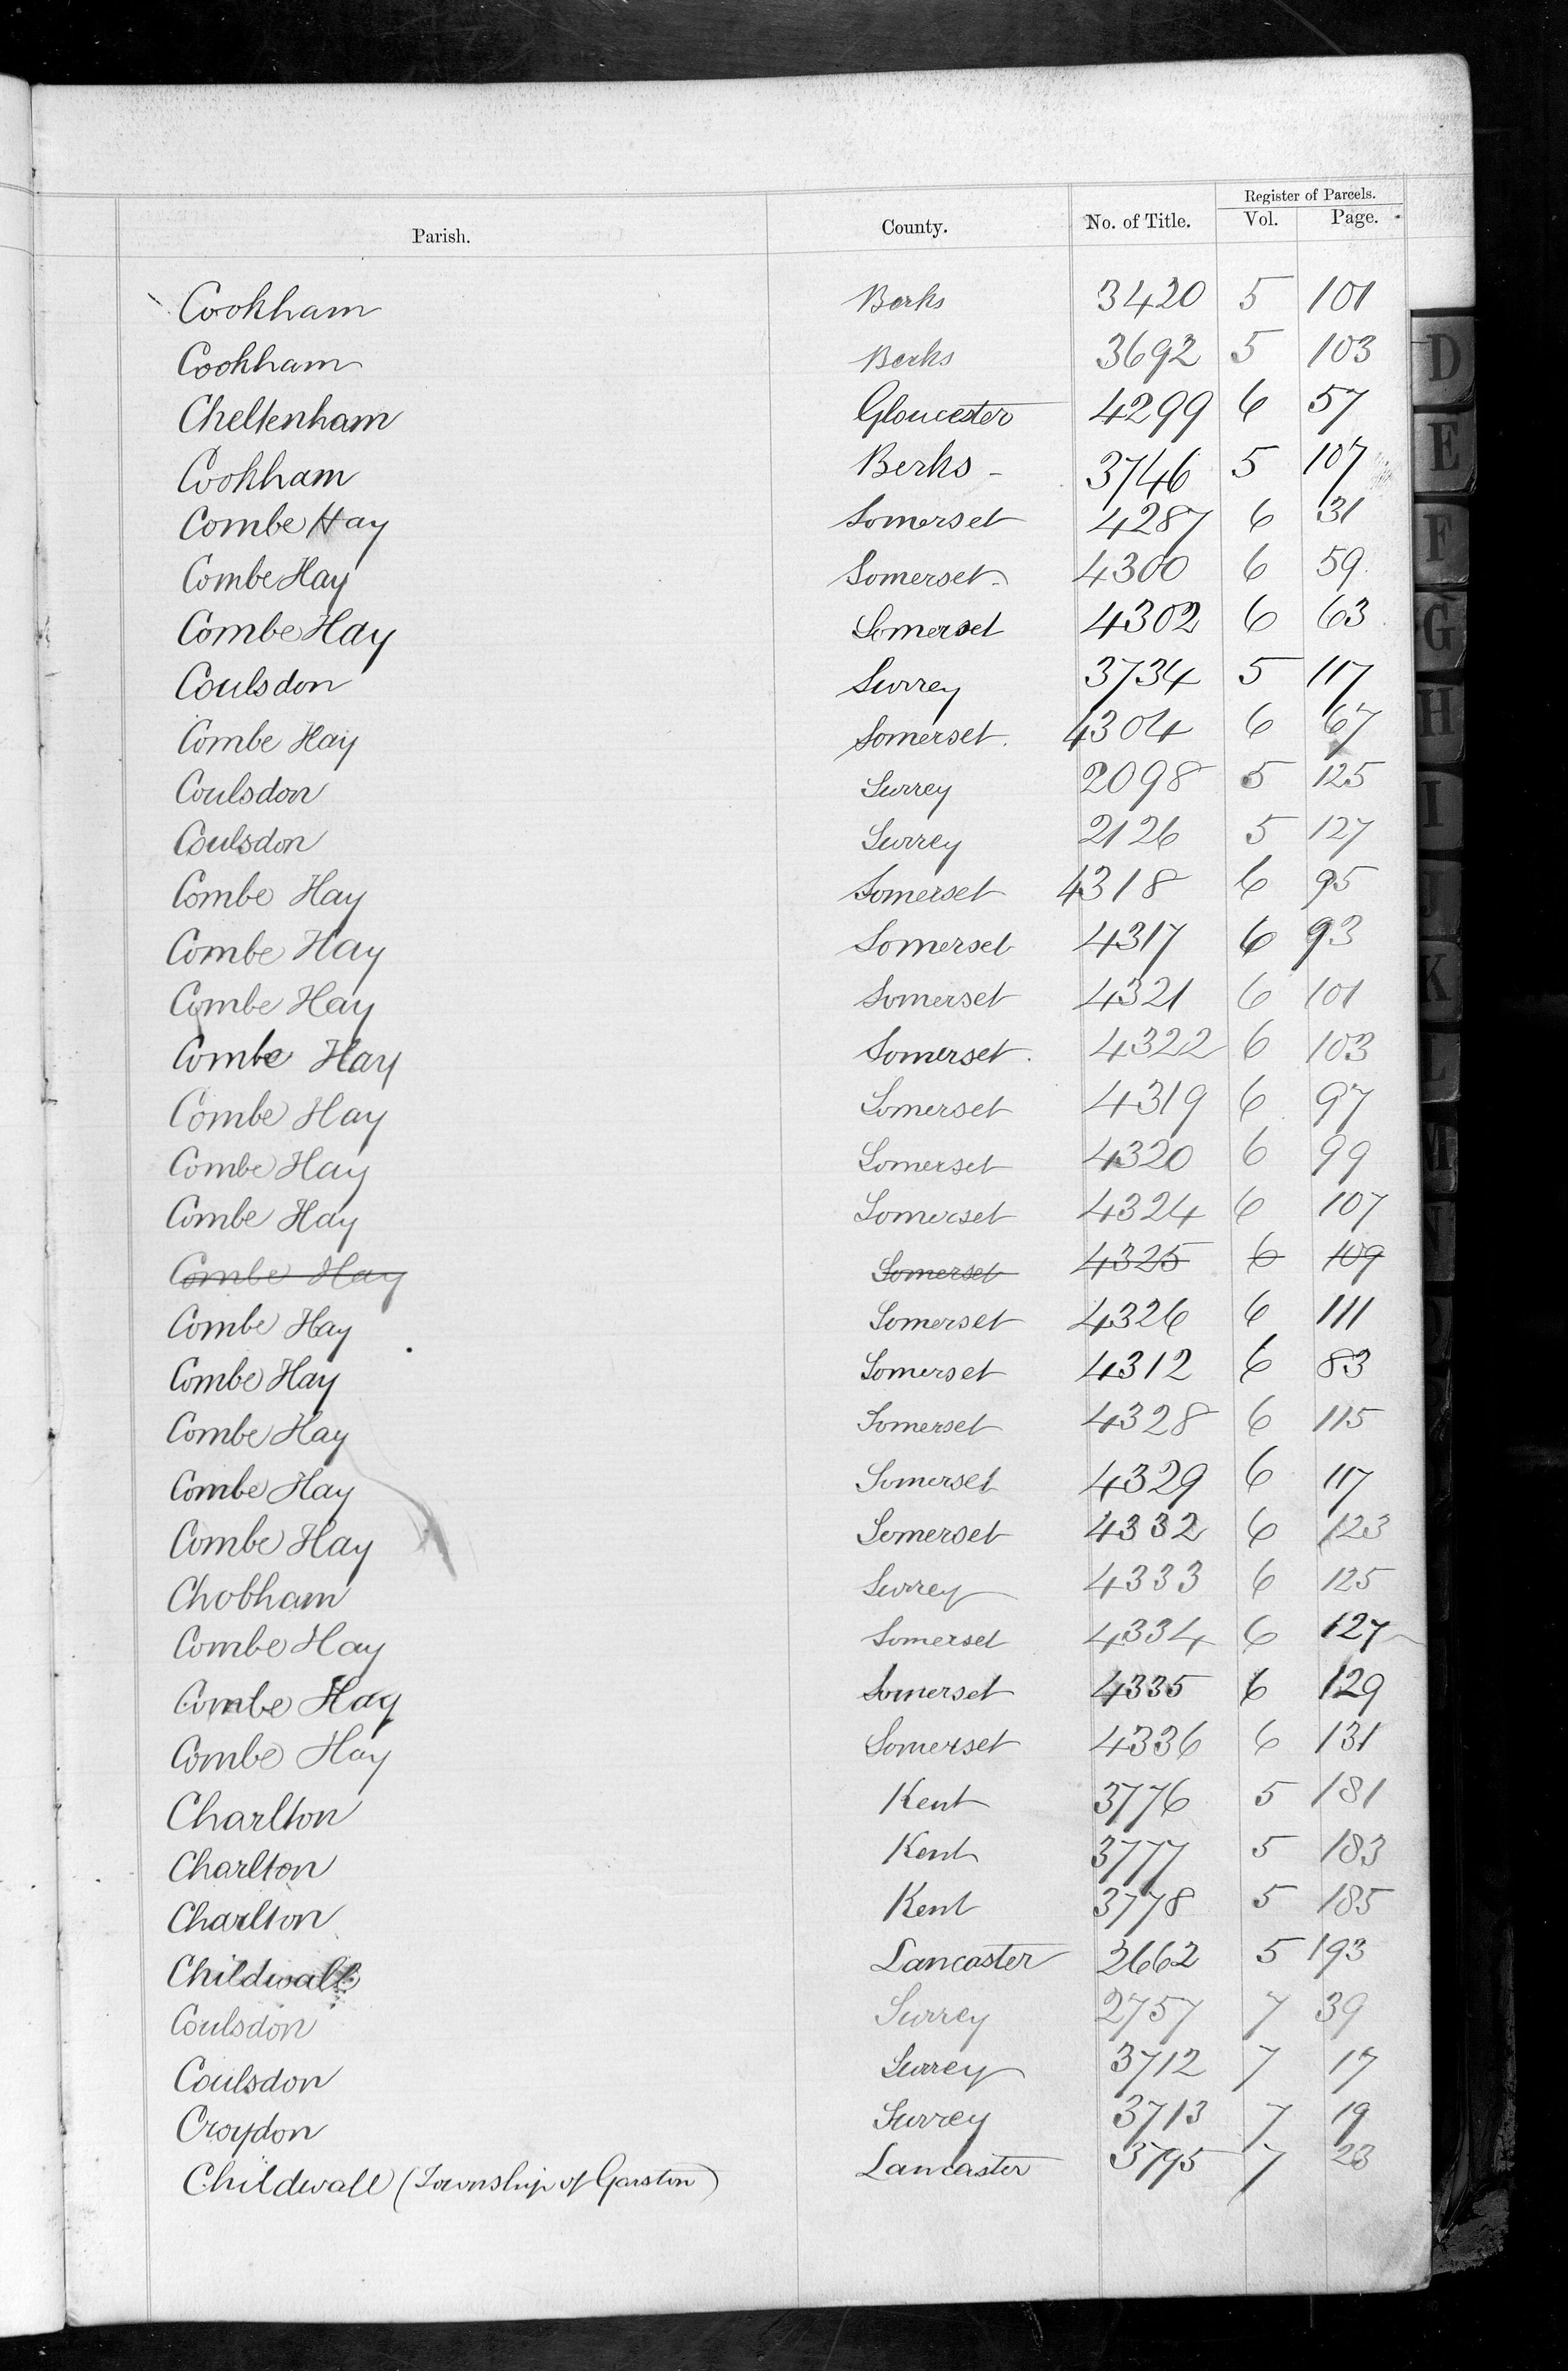 Register of Parcels.
Parish. County. No. of Title. Vol. Page.
Cookham Berks 3420 5 101
Cookham Berks 3692 5 103
Cheltenham Gloucester 4299 6 57
Cookham Berks - 3746 5 107
Combe Hay Somerset 4287 6 31
Combe Hay Somerset 4300 6 59
Combe Hay Somerset 4302 6 63
Coulsdon Surrey 3734 5 117
Combe Hay Somerset 4304 6 67
Coulsdon Surrey 2098 5 125
Coulsdon Surrey 2126 5 127
Combe Hay Somerset 4318 6 95
Combe Hay Somerset 4317 6 93
Combe Hay Somerset 4321 6 101
Combe Hay Somerset 4322 6 103
Combe Hay Somerset 4319 6 97
Combe Hay Somerset 4320 6 99
Combe Hay Somerset 4324 6 107
Combe Hay Somerset 4325 6 109
Combe Hay Somerset 4326 6 111
Combe Hay Somerset 4312 6 83
Combe Hay Somerset 4328 6 115
Combe Hay Somerset 4329 6 117
Combe Hay Somerset 4332 6 123
Chobham Surrey 4333 6 125
Combe Hay Somerset 4334 6 127
Combe Hay Somerset 4335 6 129
Combe Hay Somerset 4336 6 131
Charlton Kent 3776 5 181
Charlton Kent 3777 5 183
Charlton Kent 3778 5 185
Childwall Lancaster 2662 5 193
Coulsdon Surrey 2757 7 39
Coulsdon Surrey 3712 7 17
Croydon Surrey 3713 7 19
Childwall (Township of Garston) Lancaster 3795 7 23
D
E
F
G
H
I
J
K
L
M
N